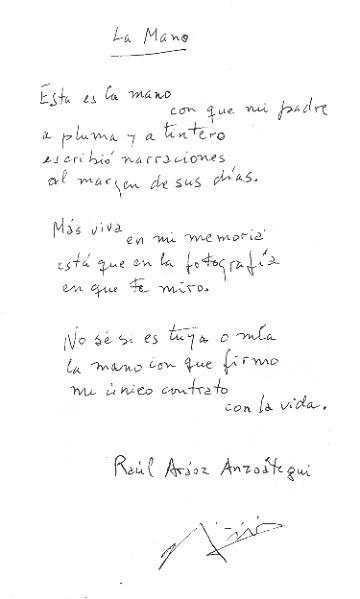 La Mano
Esta es la mano
con que mi padre
a pluma y a tintero
escribió narraciones
al margen de sus días.
Más viva
en mi memoria
está que en la fotografía
en que te miro.
No sé si es tuya o mía
la mano con que firmo
mi único contrato
con la vida.
Raúl Aráoz Anzoátegui